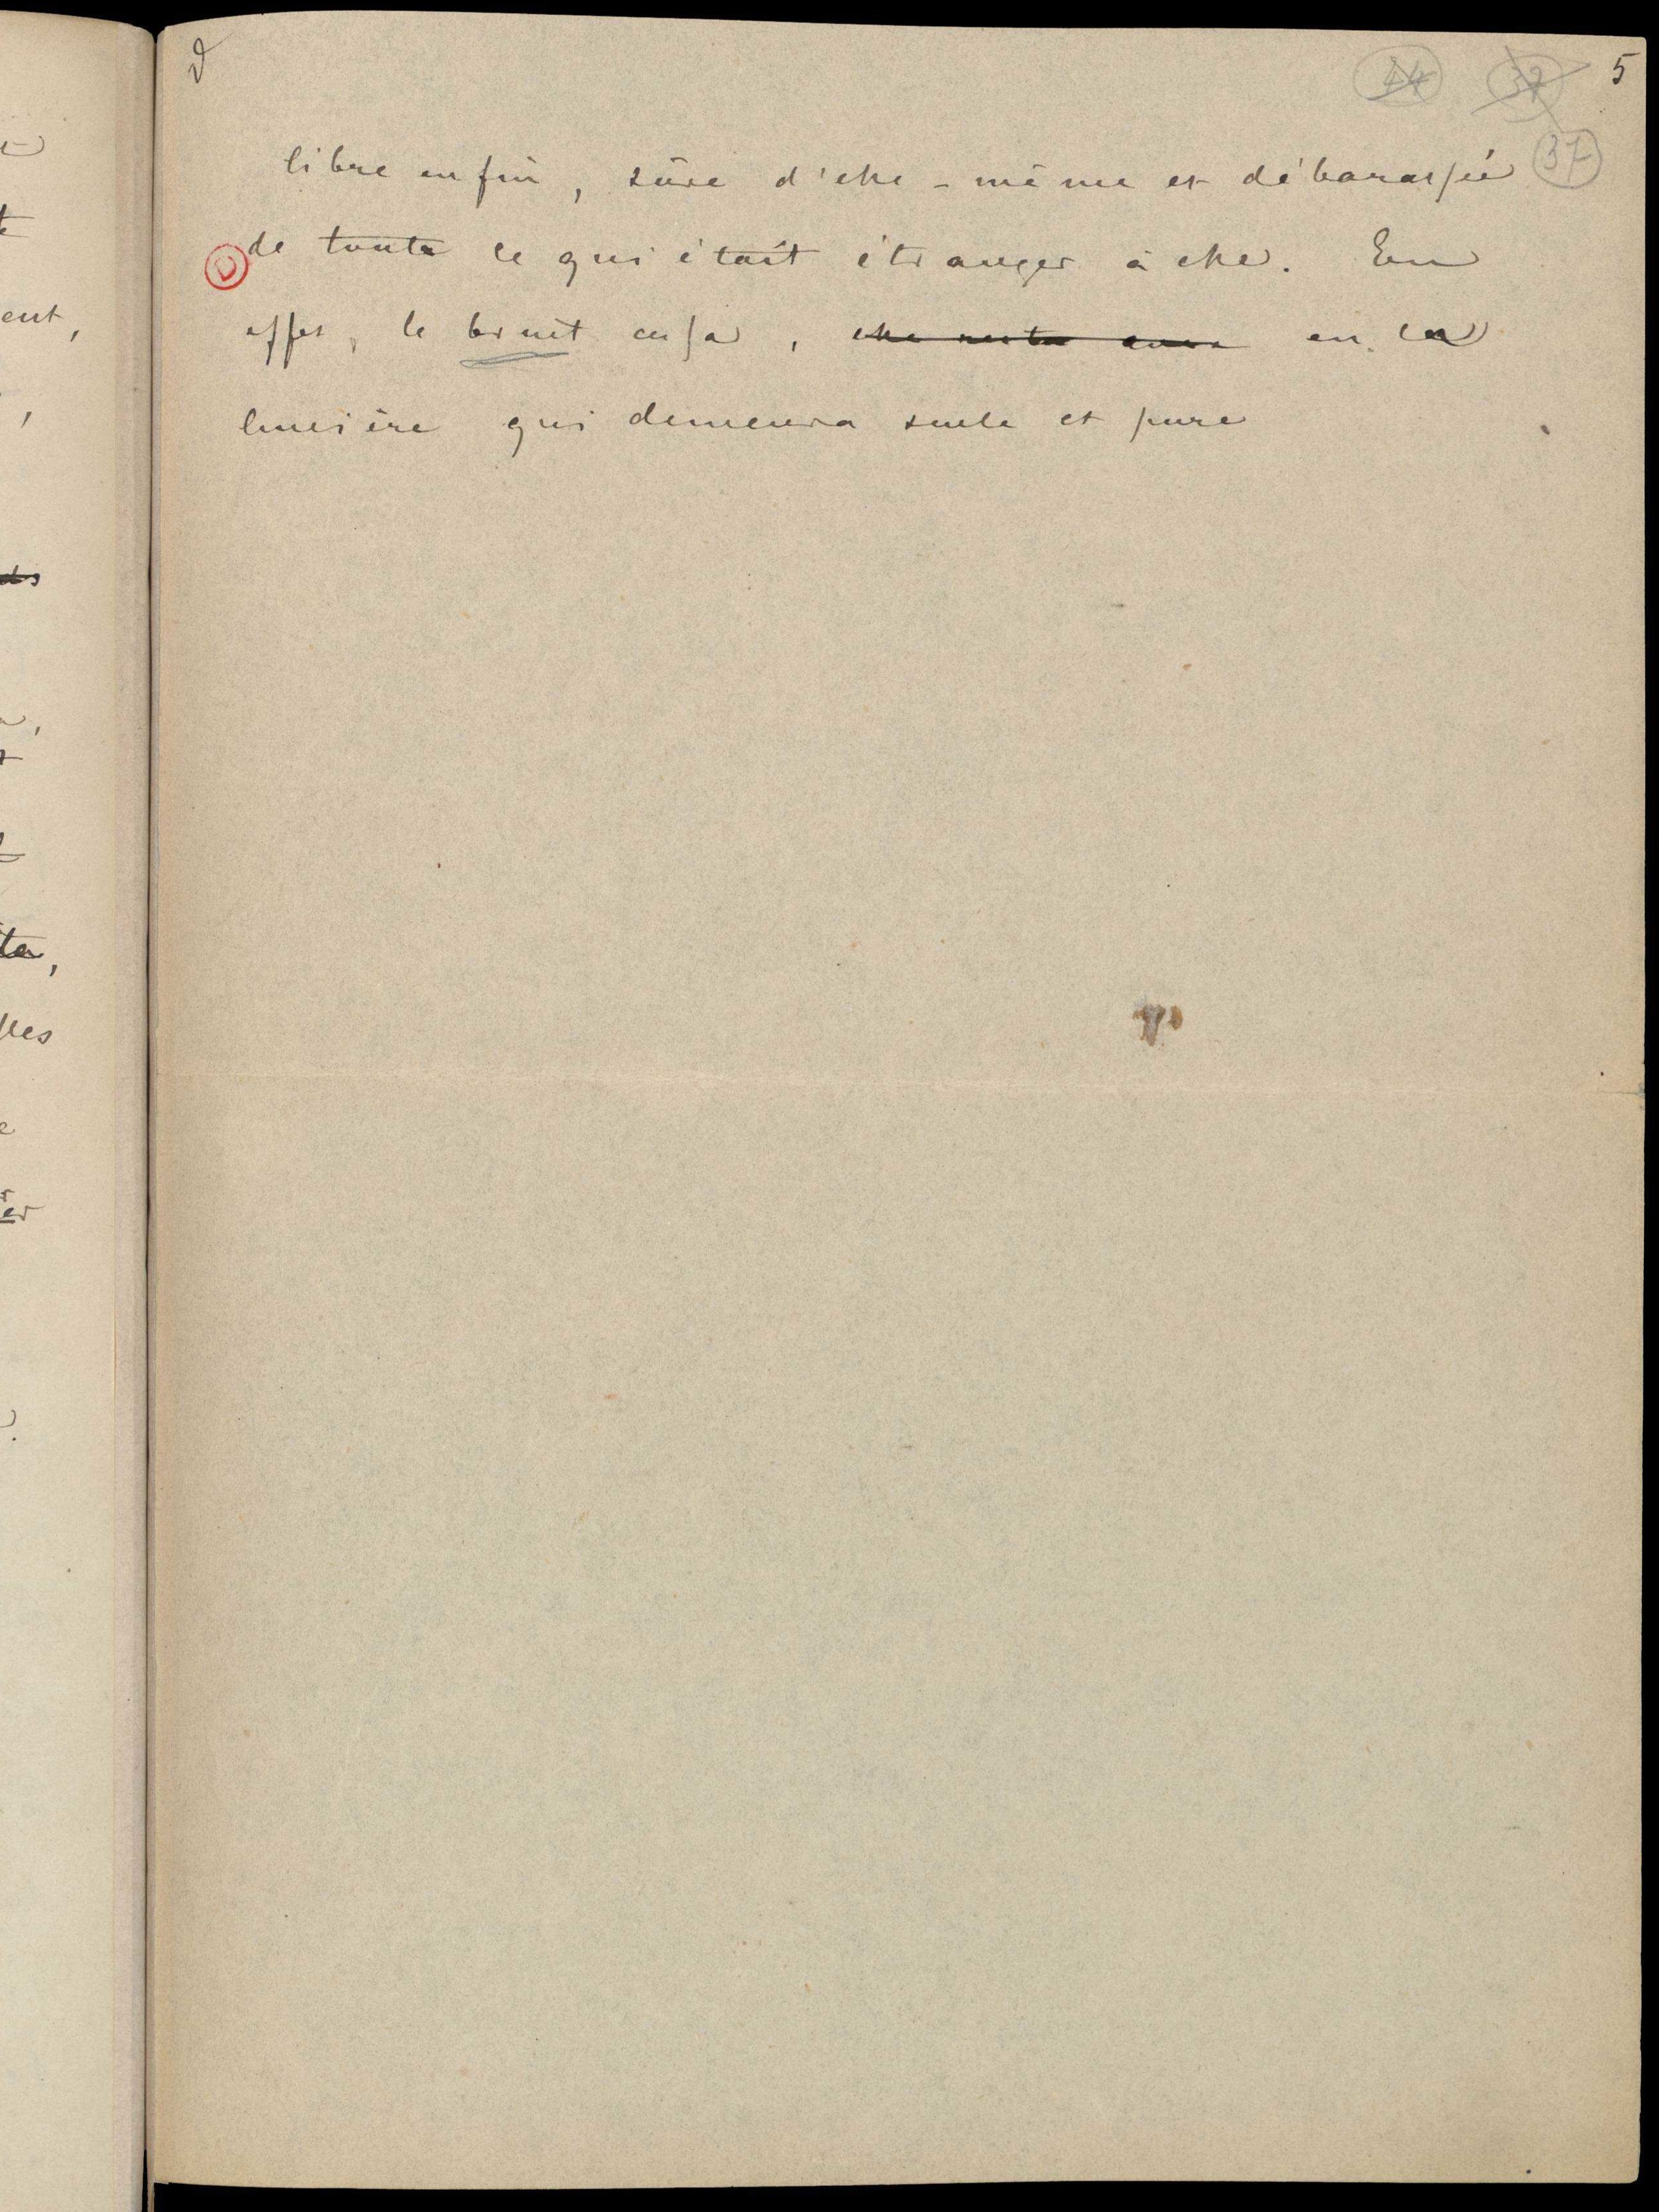 ϑ 44 37 5
libre enfin, sûre d'elle-même et débarassée 37
D de toute ce qui était étranger à elle. En
effet, le bruit cessa, elle resta avec en la
lumière qui demeura seule et pure
ent,
ds
ta,
lles
er